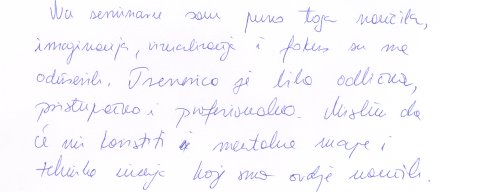 Na seminaru sam puno toga naučila,
imaginacija, vizualizacija i fokus su me
oduševili. Trenerica je bila odlična,
pristupačna i profesionalna. Mislim da
će mi koristiti i mentalne mape i
tehnika učenja koj smo ovdje naučili.